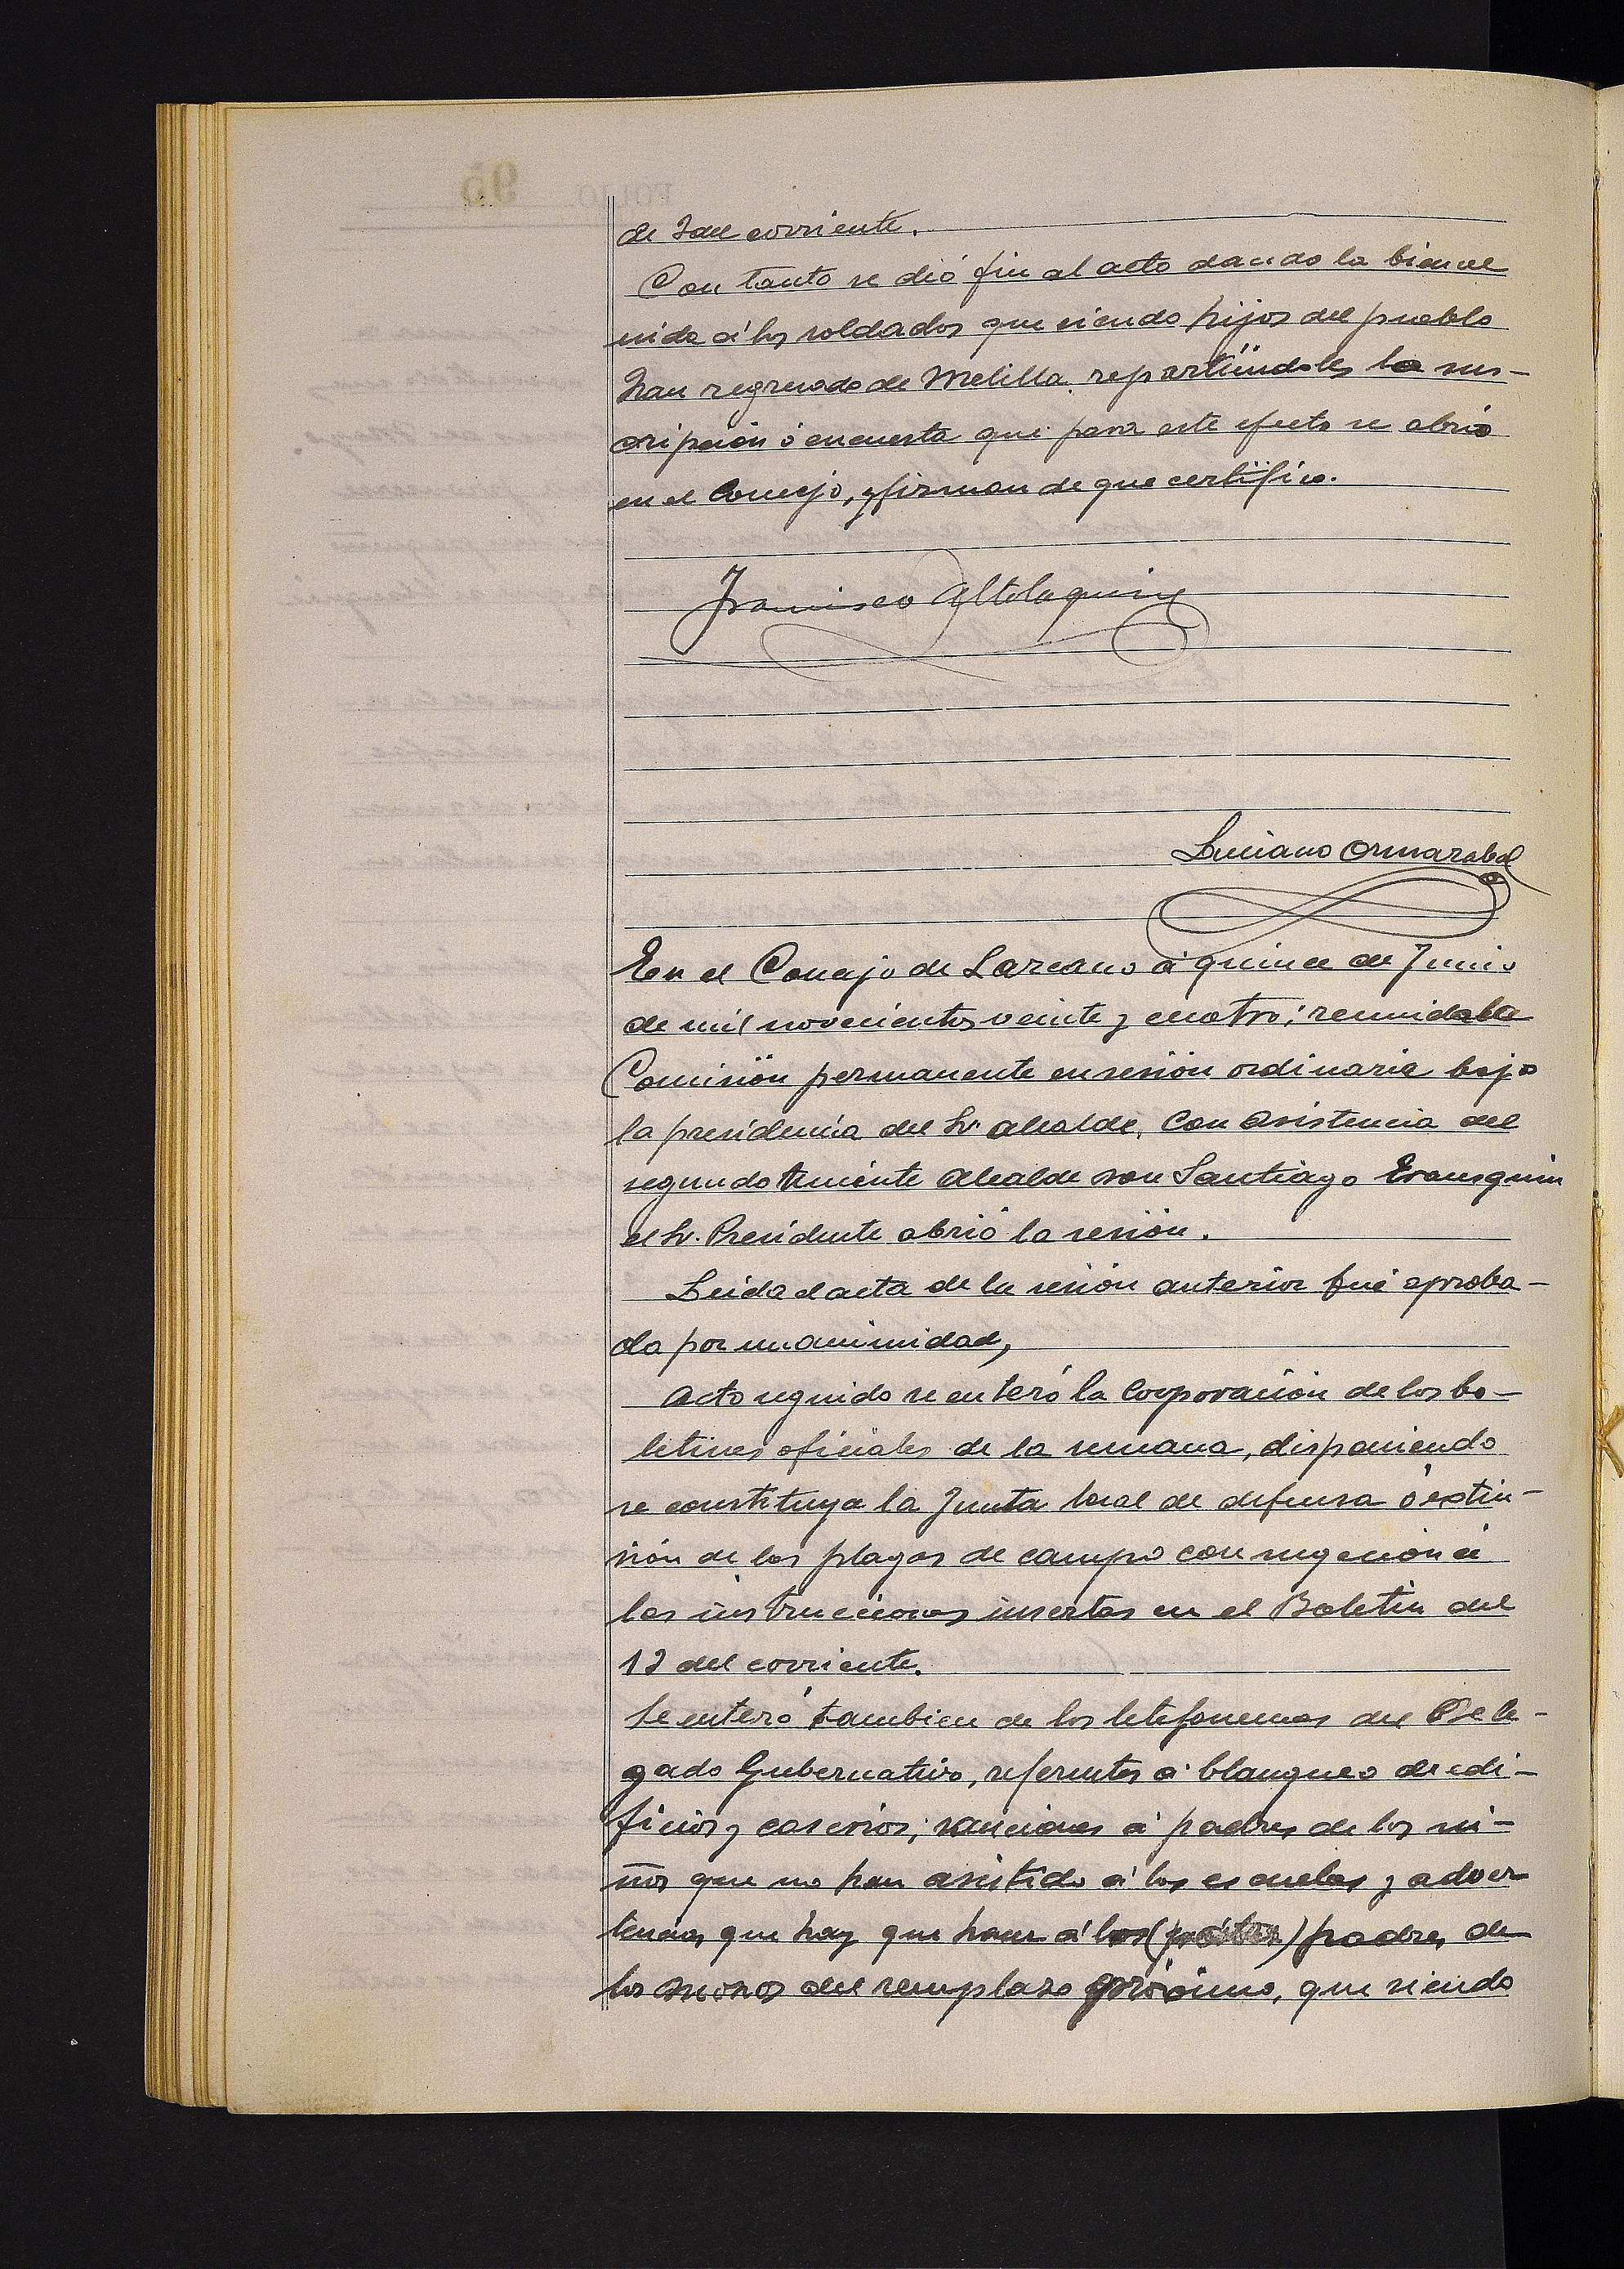 de corriente.
Con tanto se dió fin al acto dando la bienve
nida á los soldados que siendo hijos del pueblo
han regresado de Melilla, repartiéndoles la sus-
cripción ó encuesta que para este efecto se abrió
en el Concejo, y firman de que certifico.
Francisco Altolaguirre
Luciano Ormazabal
En el Concejo de Lazcano á quince de Junio
de mil novecientos veinte y cuatro; reunida la
Comisión permanente en sesión ordinaria bajo
la presidencia del Sr. Alcalde, con asistencia del
segundo teniente Alcalde Don Santiago Erausquin
el Sr. Presidente abrió la sesión.
Leida el acta de la sesión anterior fué aproba-
da por unanimidad,
Acto seguido se enteró la Corporación de los bo-
letines oficiales de la semana, disponiendo
se constituya la Junta local de defensa ó extin-
sión de las plagas de campo con sugeción á
las instrucciones insertas en el Boletin del
12 del corriente.
Se enteró tambien de los telefonemas del Dele-
gado Gubernativo, referentes á blanqueo de edi-
ficios y caserios; sanciones á padres de los ni-
ños que no han asistido á las escuelas y adver
tencias que hay que hacer á los padres de
los mozos del remplazo próximo, que siendo